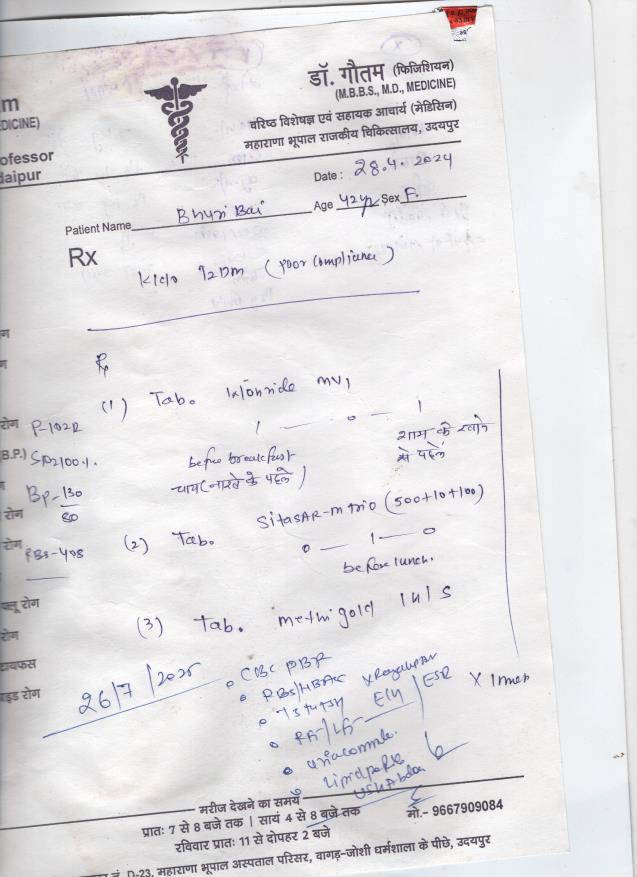 डॉ. गौतम (फिजिशियन)
(M.B.B.S., M.D., MEDICINE)
वरिष्ठ विशेषज्ञ एवं सहायक आचार्य (मेडिसिन)
महाराणा भूपाल राजकीय चिकित्सालय, उदयपुर
m
DICINE)
ofessor
daipur
Date : 28.4.2024
Patient Name Bhuri Bai Age 42yr Sex F.
Rx
K/c/o T2DM (poor compliance)
ग
ग
(1) Tab. MV1
रोग P-102R
1 — 0 — 1
B.P.) SPO2100%
before breakfast शाम के खाने
चाय (नास्ते के पहले) से पहले
ग
रोग BP-130/80
(2) Tab. SitaSAR-M trio (500+10+100)
रोग RBS-498
0 — 1 — 0
before lunch.
फ्लू रोग
रोग
(3) Tab. methigold 1H1S
टायफस
इड रोग
26/7/2025
CBC PBF
T3 T4 TSH
RFT/LFT ECG / ESR X 1
Lipid
मरीज देखने का समय
प्रातः 7 से 8 बजे तक | सायं 4 से 8 बजे तक
मो.- 9667909084
रविवार प्रातः 11 से दोपहर 2 बजे
नं. D-23, महाराणा भूपाल अस्पताल परिसर, वागड़-जोशी धर्मशाला के पीछे, उदयपुर